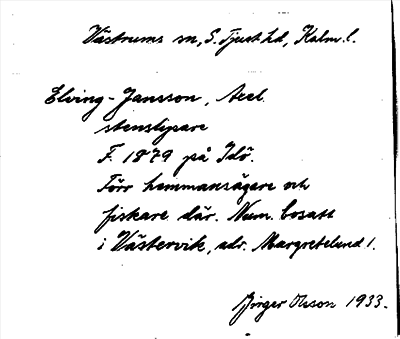 Västrums sn, S. Tjust hd, Kalm. l.
Elving-Jansson, Axel.
stenslipare
F. 1879 på Idö.
Förr hemmansägare och
fiskare där. Num. bosatt
i Västervik, adr. Margretelund 1.
Birger Olsson 1933.